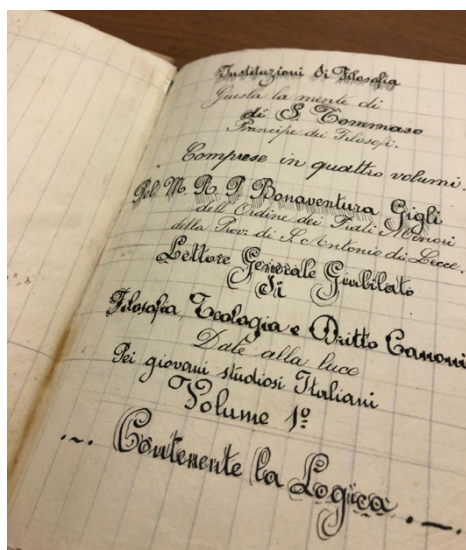 Instituzioni di Filosofia
Giusta la mente di
di S. Tommaso
Principe dei Filosofi.
Comprese in quattro volumi.
Pel M. R. P. Bonaventura Gigli
dell'Ordine dei Frati Minori
della Prov. di S. Antonio di Lecce.
Lettore Generale Giubilato
di
Filosofia Teologia e Dritto Canoni
Date alla luce
Pei giovani studiosi Italiani
Volume 1º
Contenente la Logica.